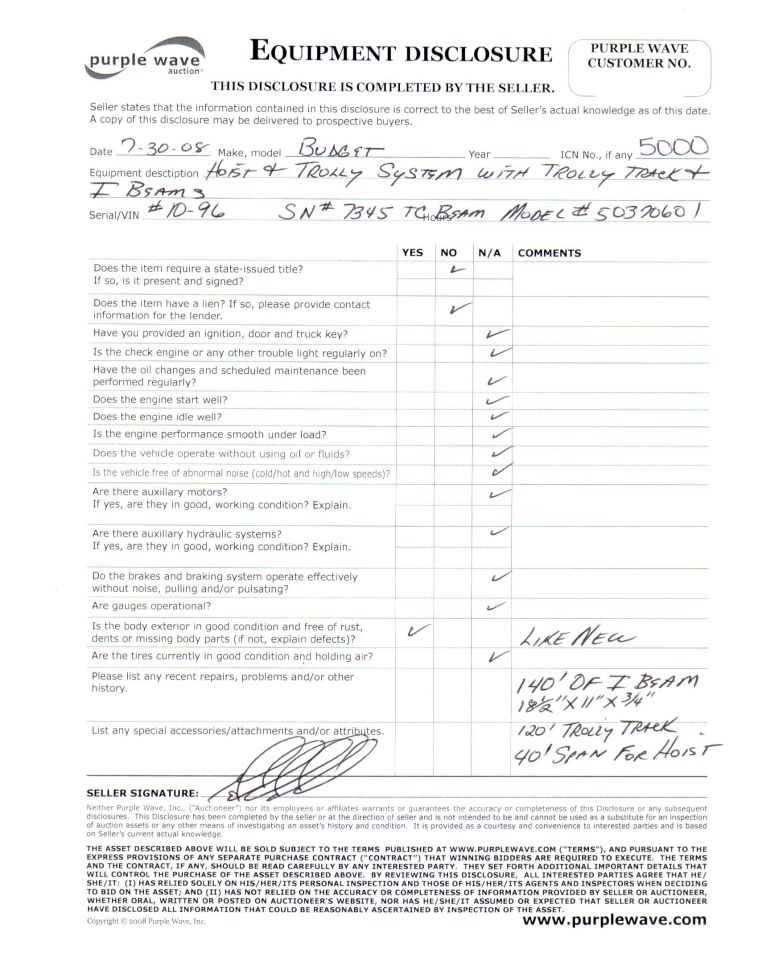 purple wave
auction
EQUIPMENT DISCLOSURE
PURPLE WAVE
CUSTOMER NO.
THIS DISCLOSURE IS COMPLETED BY THE SELLER.
Seller states that the information contained in this disclosure is correct to the best of Seller's actual knowledge as of this date.
A copy of this disclosure may be delivered to prospective buyers.
Date 7-30-08 Make, model BUDGET Year ICN No., if any 5000
Equipment desctiption HOIST & TROLLY SYSTEM WITH TROLLY TRACK &
I BEAMS
Serial/VIN #10-96 SN# 7345 TC Hours BEAM MODEL # 50370601
YES NO N/A COMMENTS
Does the item require a state-issued title?
If so, is it present and signed?
Does the item have a lien? If so, please provide contact
information for the lender.
Have you provided an ignition, door and truck key?
Is the check engine or any other trouble light regularly on?
Have the oil changes and scheduled maintenance been
performed regularly?
Does the engine start well?
Does the engine idle well?
Is the engine performance smooth under load?
Does the vehicle operate without using oil or fluids?
Is the vehicle free of abnormal noise (cold/hot and high/low speeds)?
Are there auxillary motors?
If yes, are they in good, working condition? Explain.
Are there auxillary hydraulic systems?
If yes, are they in good, working condition? Explain.
Do the brakes and braking system operate effectively
without noise, pulling and/or pulsating?
Are gauges operational?
Is the body exterior in good condition and free of rust,
dents or missing body parts (if not, explain defects)? LIKE NEW
Are the tires currently in good condition and holding air?
Please list any recent repairs, problems and/or other
history.
140' OF I BEAM
18½" X 11" X 3/4"
List any special accessories/attachments and/or attributes.
120' TROLLY TRACK
40' SPAN FOR HOIST
SELLER SIGNATURE:
Neither Purple Wave, Inc., ("Auctioneer") nor its employees or affiliates warrants or guarantees the accuracy or completeness of this Disclosure or any subsequent
disclosures. This Disclosure has been completed by the seller or at the direction of seller and is not intended to be and cannot be used as a substitute for an inspection
of auction assets or any other means of investigating an asset's history and condition. It is provided as a courtesy and convenience to interested parties and is based
on Seller's current actual knowledge.
THE ASSET DESCRIBED ABOVE WILL BE SOLD SUBJECT TO THE TERMS PUBLISHED AT WWW.PURPLEWAVE.COM ("TERMS"), AND PURSUANT TO THE
EXPRESS PROVISIONS OF ANY SEPARATE PURCHASE CONTRACT ("CONTRACT") THAT WINNING BIDDERS ARE REQUIRED TO EXECUTE. THE TERMS
AND THE CONTRACT, IF ANY, SHOULD BE READ CAREFULLY BY ANY INTERESTED PARTY. THEY SET FORTH ADDITIONAL IMPORTANT DETAILS THAT
WILL CONTROL THE PURCHASE OF THE ASSET DESCRIBED ABOVE. BY REVIEWING THIS DISCLOSURE, ALL INTERESTED PARTIES AGREE THAT HE/
SHE/IT: (I) HAS RELIED SOLELY ON HIS/HER/ITS PERSONAL INSPECTION AND THOSE OF HIS/HER/ITS AGENTS AND INSPECTORS WHEN DECIDING
TO BID ON THE ASSET; AND (II) HAS NOT RELIED ON THE ACCURACY OR COMPLETENESS OF INFORMATION PROVIDED BY SELLER OR AUCTIONEER,
WHETHER ORAL, WRITTEN OR POSTED ON AUCTIONEER'S WEBSITE, NOR HAS HE/SHE/IT ASSUMED OR EXPECTED THAT SELLER OR AUCTIONEER
HAVE DISCLOSED ALL INFORMATION THAT COULD BE REASONABLY ASCERTAINED BY INSPECTION OF THE ASSET.
Copyright © 2008 Purple Wave, Inc.
www.purplewave.com